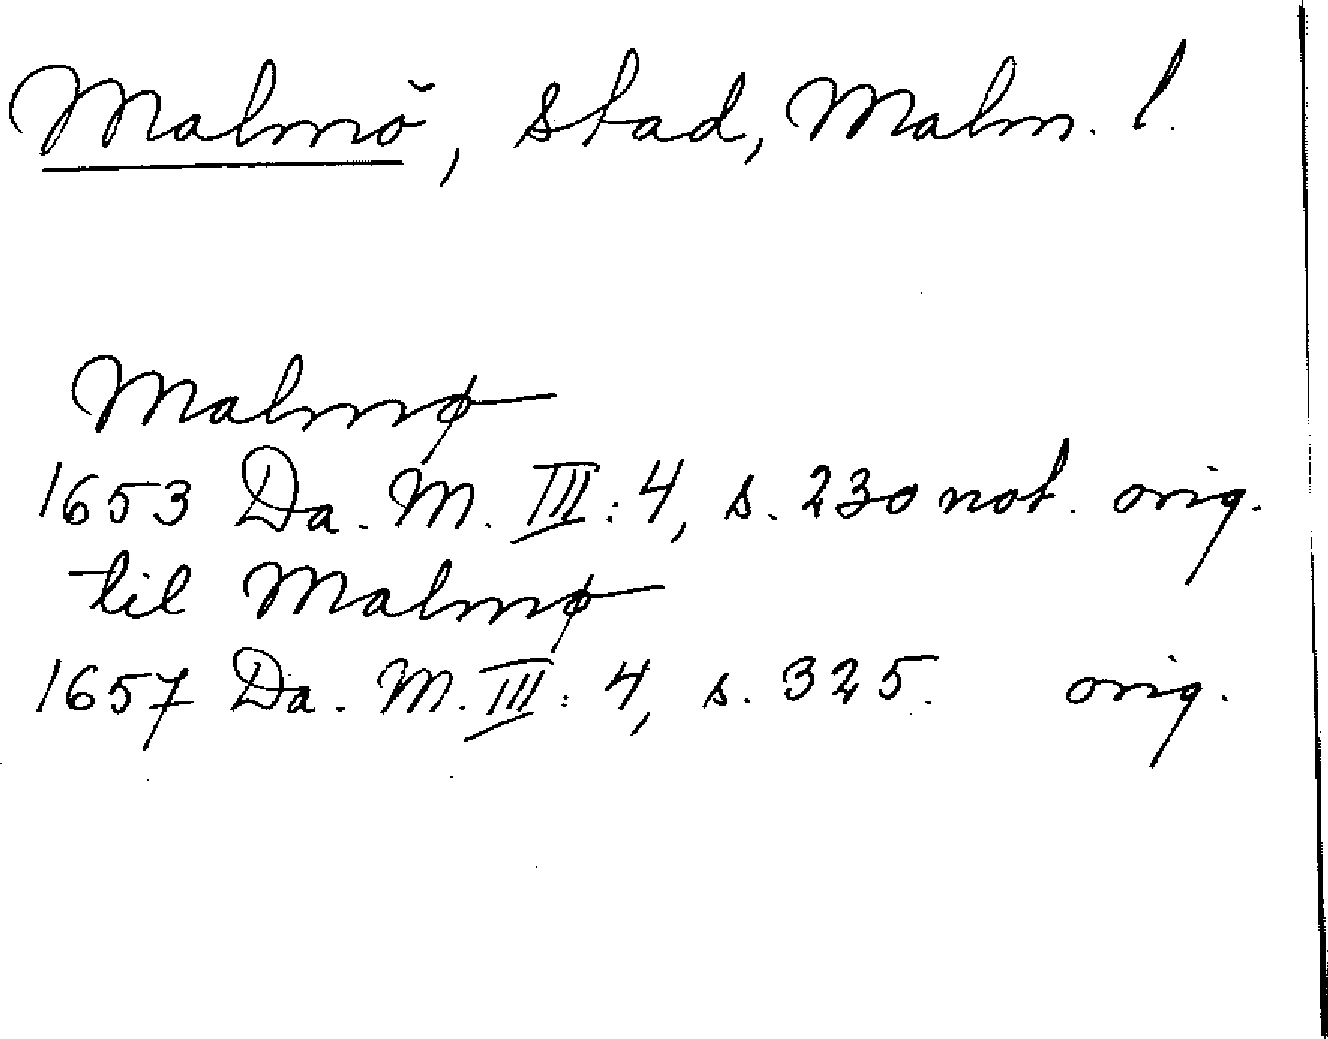 Malmö, stad, Malm. l.
Malmø
1653 Da. M. III: 4, s. 230 not. orig.
til Malmø
1657 Da. M. III: 4, s. 325. orig.